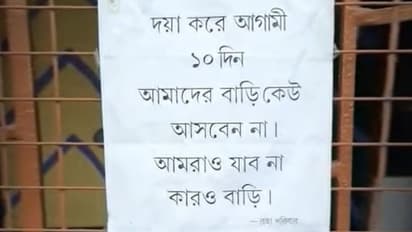 দয়া করে আগামী
১০ দিন
আমাদের বাড়িকেউ
আসবেন না।
আমরাও যাব না
কারও বাড়ি।
— রাহা পরিবার